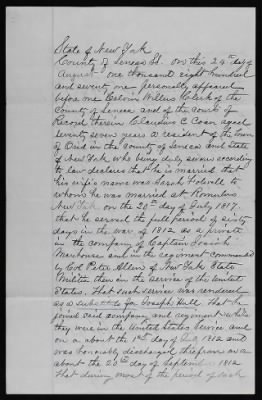 State of New York
County of Seneca SS. On this 29th day of
August one thousand eight hundred
and seventy one personally appeared
before me Calvin Willers Clerk of the
County of Seneca and of the court of
Record therein Claudius C Coan aged
seventy seven years a resident of the town
of Ovid in the county of Seneca and State
of New York who being duly sworn according
to law declares that he is married that
his wife's name was Sarah to
whom he was married at Romulus
New York on the 20th day of July 1817.
that he served the full period of sixty
days in the war of 1812 as a private
in the company of Captain Josiah
Morehouse and in the regiment commanded
by Col Peter Allen of New York State
Militia then in the service of the United
States. That said service was rendered
as a substitute for Joseph Hall that he
joined said company and regiment while
they were in the United States Service and
on or about the 1st day of 1812 and
was honorably discharged therefrom on or
about the 20th day of September 1812
that during most of the period of such